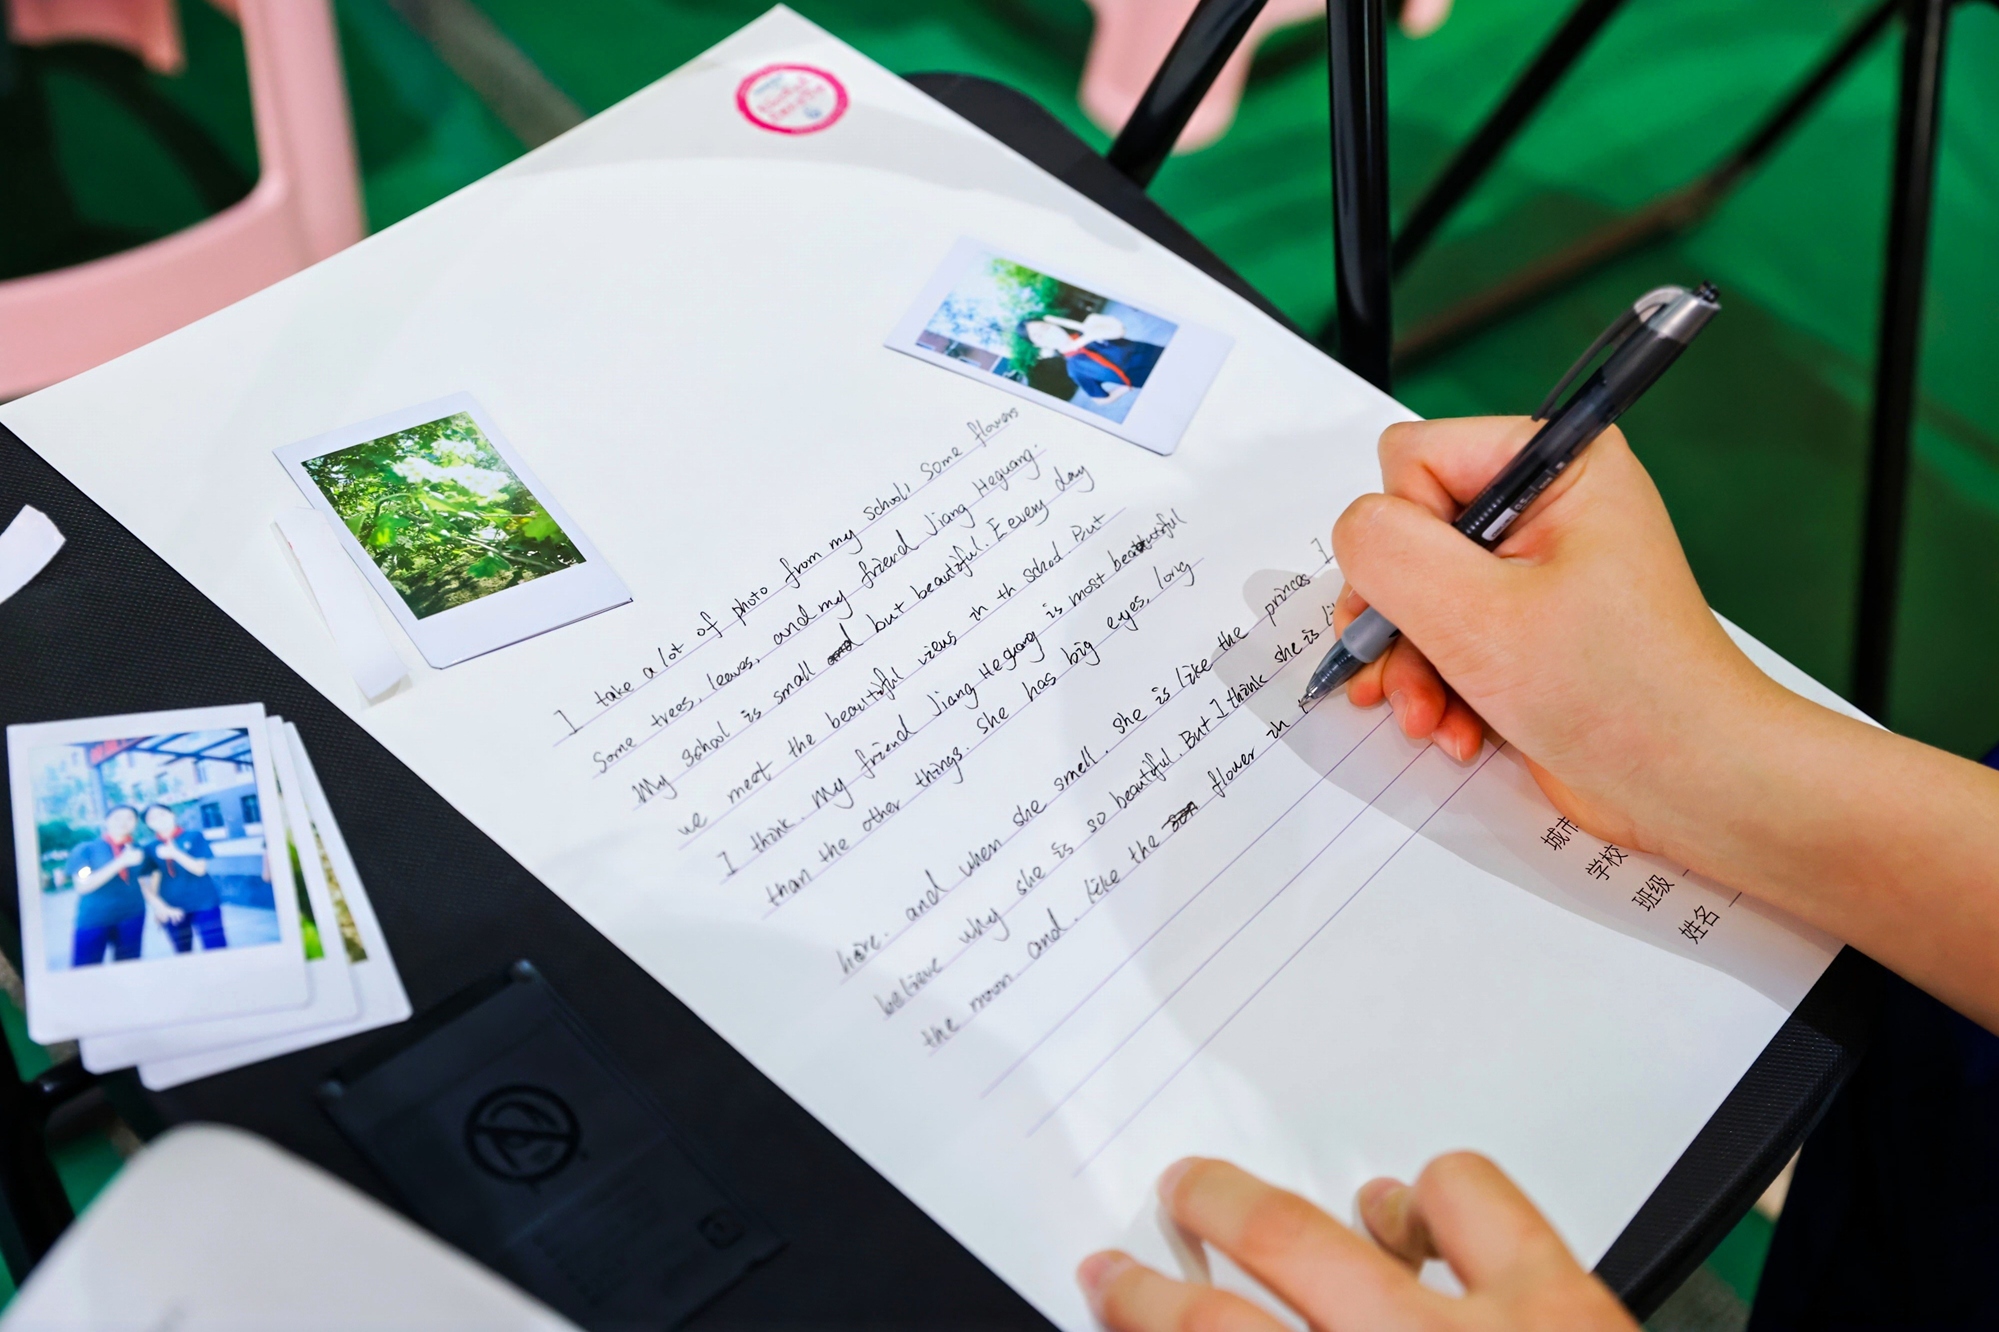 I take a lot of photo from my school, Some flowers
Some trees, leaves, and my friend Jiang Heguang.
My School is small and but beautiful. E every day
we meet the beautiful views in th school. But
I think, my friend Jiang Heguang is most beautiful
than the other things. she has big eyes, long
haire. and when she smell, she is like the princes I
believe why she is so beautiful. But I think she is li
the moon and, like the flower in t
城市
学校
班级
姓名